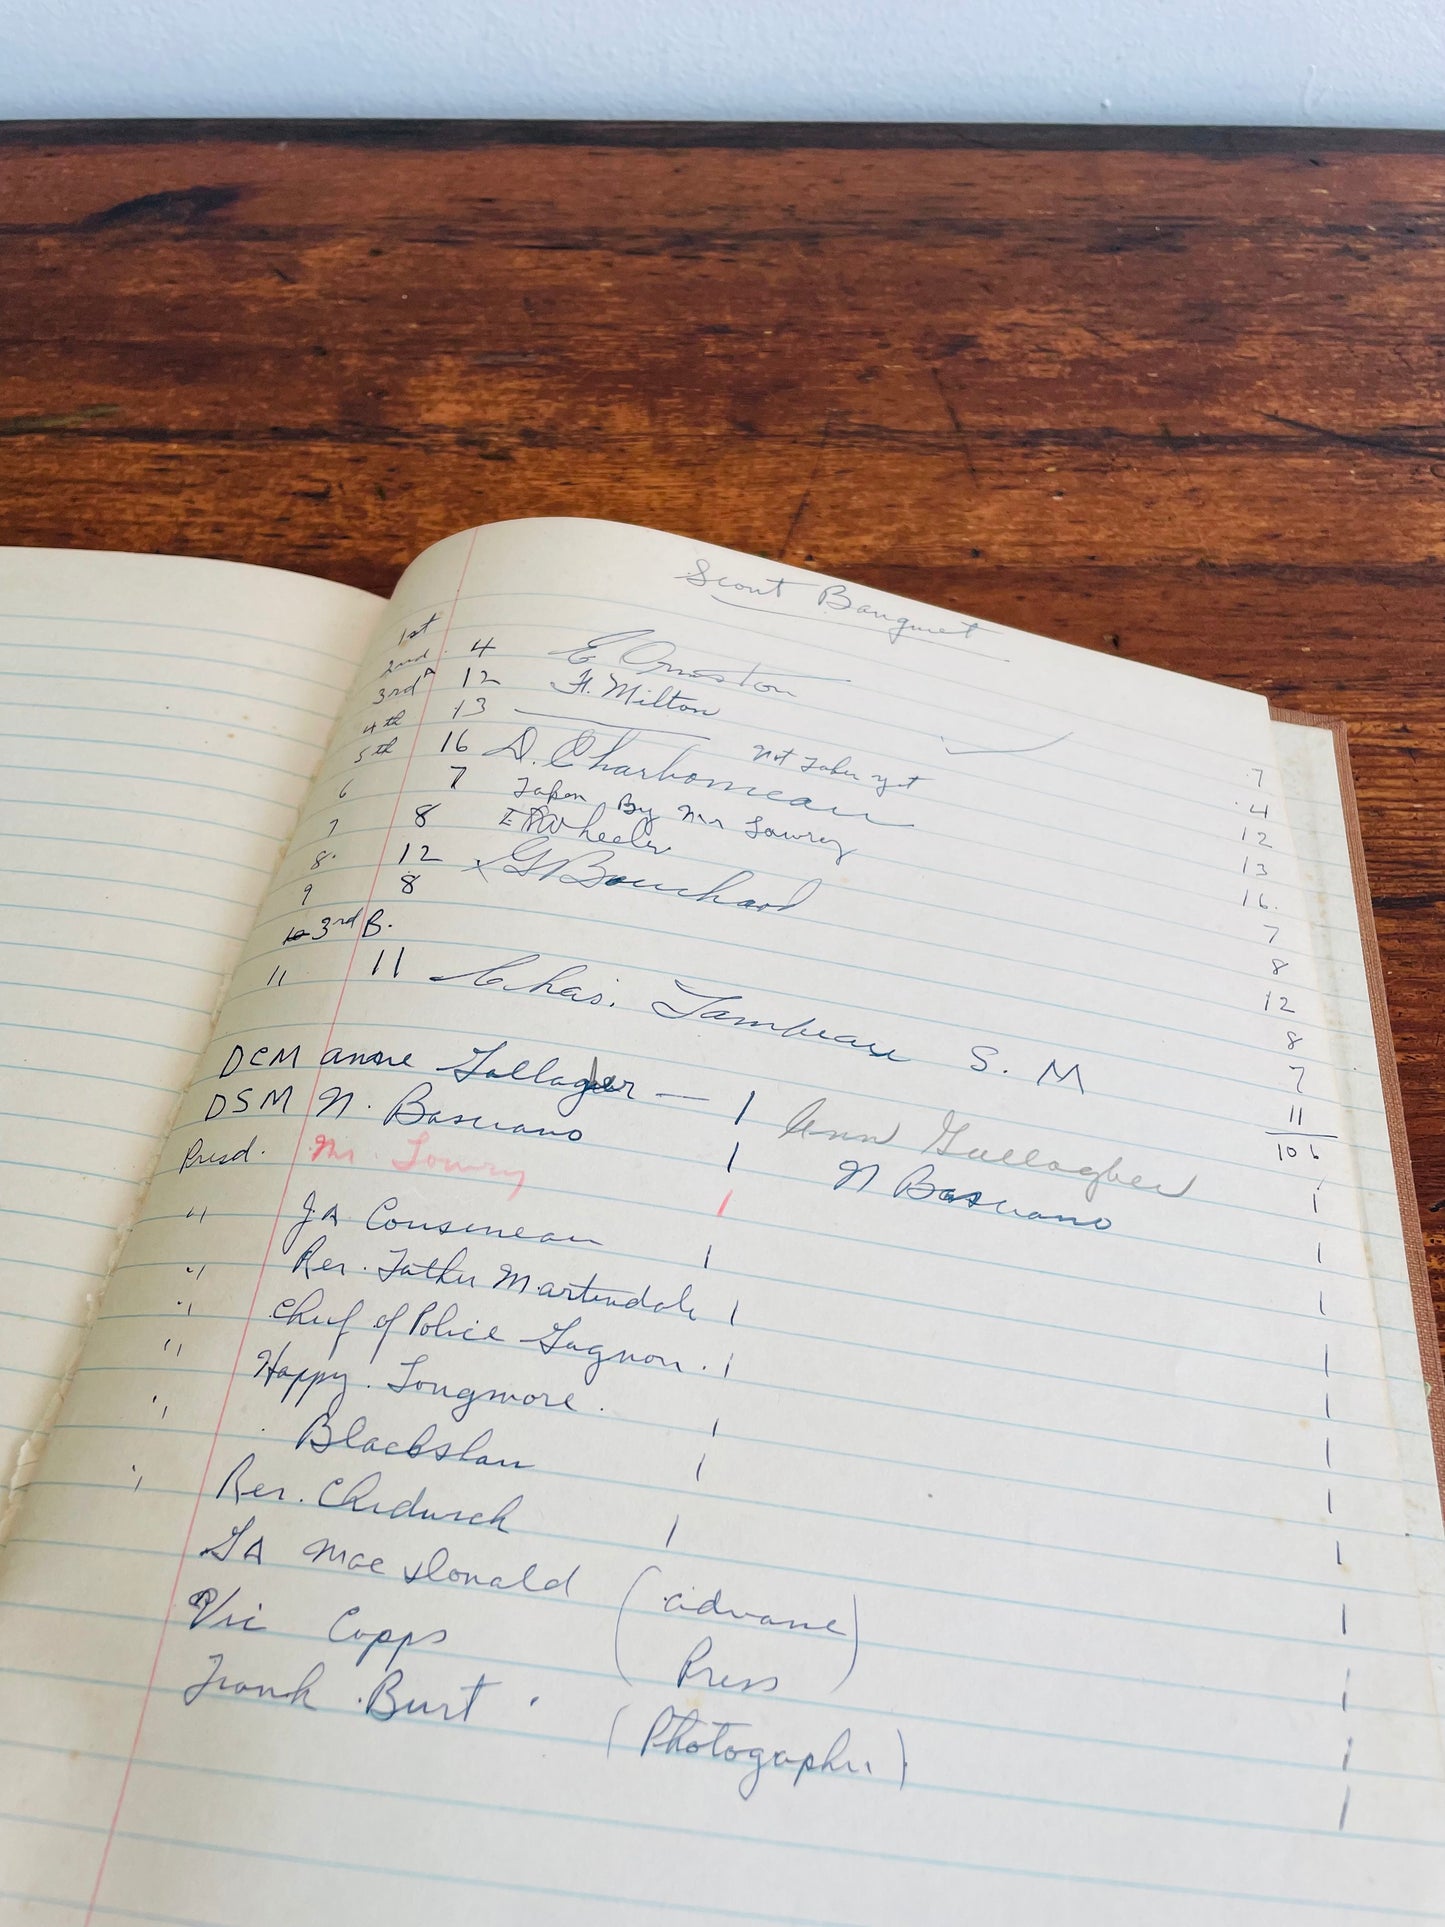 Scout Banquet
1st
2nd 4 E Ormston
3rd A 12 H. Milton
4th 13 Not Taken yet 7
5th 16 D. Charbonneau 4
6 7 Taken By Mr Lowry 12
7 8 Wheeler 13
8. 12 x G Bouchard 16.
9 8 7
3rd B. 8
11 11 Chas. Tambeau S. M 12
8
7
11
106
DCM Anne Gallagher — 1 Ann Gallagher 1
DSM N. Basciano 1 N Basciano 1
Presd. Mr Lowry 1 1
" J.A Cousineau 1 1
" Rev. Father Martindale 1 1
" Chief of Police Gagnon. 1 1
" Happy Longmore. 1 1
" Blackslau 1 1
" Rev. Chidwick 1 1
GA MacDonald (advance 1
Vic Copps Press) 1
Frank Burt (Photographer) 1